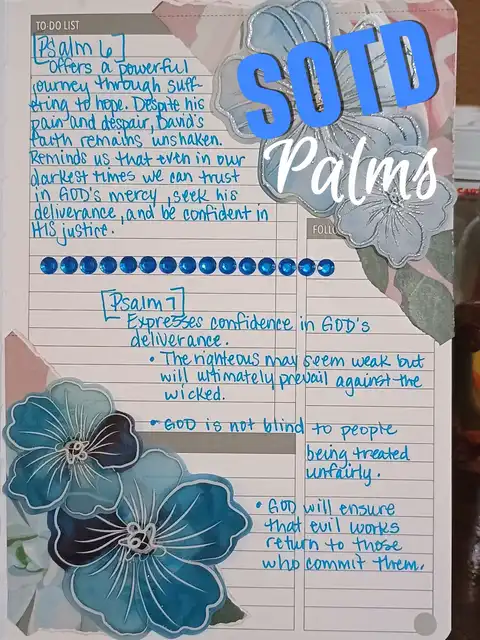 TO-DO LIST
SOTD
Palms
[Psalm 6]
Offers a powerful
journey through suff-
ering to hope. Despite his
pain and despair, David's
faith remains unshaken.
Reminds us that even in our
darkest times we can trust
in GOD's mercy, seek his
deliverance, and be confident in
HIS justice.
FOLL
[Psalm 7]
Expresses confidence in GOD's
deliverance.
• The righteous may seem weak but
will ultimately prevail against the
wicked.
• GOD is not blind to people
being treated
unfairly.
• GOD will ensure
that evil works
return to those
who commit them.